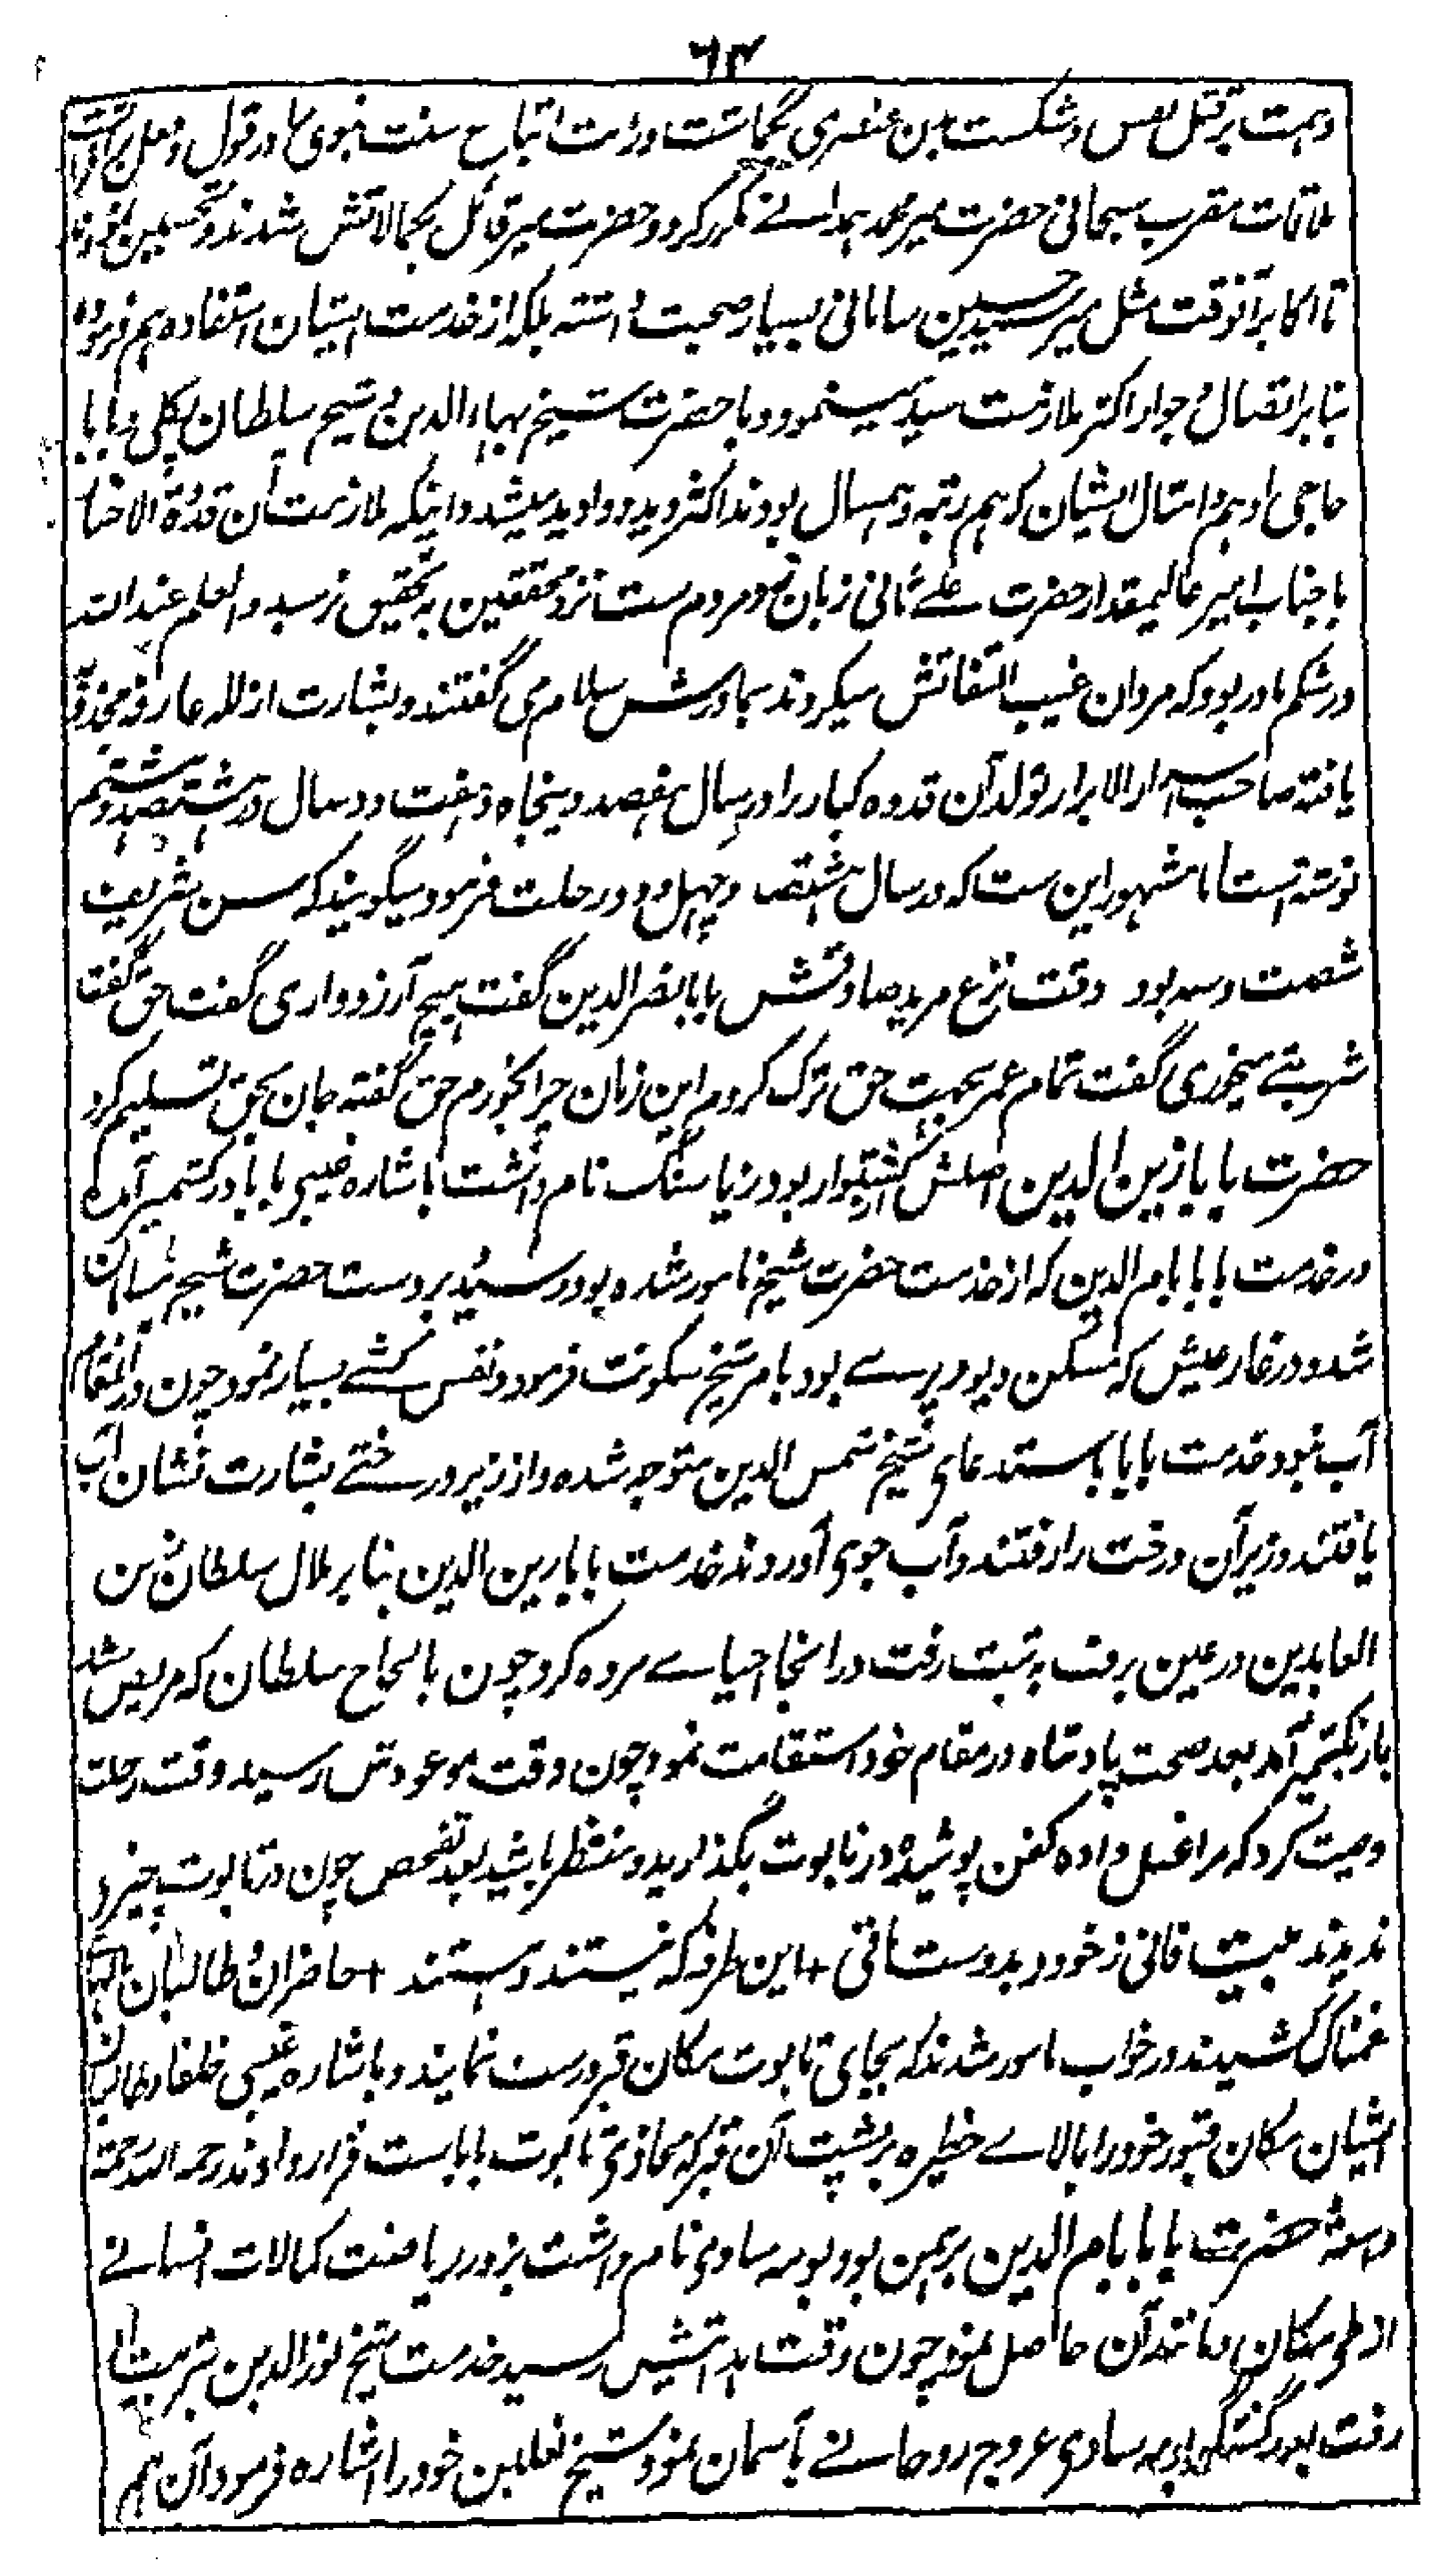 ٦٣
وہمت بر قتل نفس و شکست بدن عنصری گماشت و رایت اتباع سنت نبوی در قول و فعل برافراشت
ملاقات مقرب سبحانی حضرت میر محمد ہمدانے مکرر کرد و حضرت میر قائل بکمالاتش شدند و تحسین نمودند
تا اکابر آنوقت مثل میر سید حسین سامانی بسیار صحبت داشتہ بلکہ از خدمت ایشان استفادہ ہم فرمودہ
بنا بر اتصال جوار اکثر ملازمت سید مینمود و با حضرت شیخ بہاءالدین و شیخ سلطان پکلی و بابا
حاجی ادہم و امثال ایشان کہ ہم رتبہ و ہمسال بودند اکثر دید و وادید میشد و اینکہ ملازمت آن قدوۃ الاخیار
با جناب امیر عالیمقدار حضرت علے ثانی زبان زد مردم ست نزد محققین بہ تحقیق نرسید والعلم عند اللہ
در شکم مادر بود کہ مردان غیب التفاتش میکردند بمادرش سلام می گفتند و بشارت از للہ عارفہ مجذوبہ
یافتہ صاحب اسرار الابرار تولد آن قدوہ کبار را در سال ہفصد و پنجاہ و ہفت و وسال در ہشتصد و ہشتم
نوشتہ است اما مشہور این ست کہ در سال ہشتصد و چہل و دو رحلت فرمود میگویند کہ سن شریف
شصت و سہ بود وقت نزع مرید صادقش بابا نصر الدین گفت ہیچ آرزو داری گفت حق گفت
شربتے میخوری گفت تمام عمر بمحبت حق ترک کردم این زمان چرا بخورم حق گفتہ جان بحق تسلیم کرد
حضرت بابا زین الدین اصلش از کشتوار بود زیا سنگ نام داشت باشارہ غیبی بابا در کشمیر آمدہ
در خدمت بابا بام الدین کہ از خدمت حضرت شیخ مامور شدہ بود رسید بر دست حضرت شیخ مسلمان
شد و در غار عیش کہ مسکن دیو و پری بود بامر شیخ سکونت فرمود و نفس کشے بسیار نمود چون در آنمقام
آب نبود خدمت بابا باستدعای شیخ شمس الدین متوجہ شدہ و از زیر درختے بشارت نشان آب
یافتند و زیر آن درخت را رفتند و آب جوی آوردند خدمت بابا زین الدین بنا بر ملال سلطان زین
العابدین در عین برف بہ تبت رفت در انجا احیاے مردہ کرد چون بالحاح سلطان کہ مریض شد
باز بکشمیر آمد بعد صحت پادشاہ در مقام خود استقامت نمود چون وقت موعودش رسید وقت رحلت
وصیت کرد کہ مرا غسل دادہ کفن پوشیدہ در تابوت بگذارید و منتظر باشید بعد تفحص چون در تابوت چیزے
ندیدند بیت فانی ز خود و بدوست باقی + این طرفہ کہ نیستند و ہستند + حاضران و طالبان
غمناک گشتند در خواب مامور شدند کہ بجای تابوت مکان قبر درست نمایند و باشارہ غیبی خلفا و طالبان
ایشان مکان قبور خود را بالاے حظیرہ بر پشت آن قبر کہ محاذی تابوت باباست قرار دادند رحمہ اللہ رحمۃ
واسعۃ حضرت بابا بام الدین برہمن بود بومہ سادی نام داشت بزور ریاضت کمالات انسانے
از طی مکان و مانند آن حاصل نمود چون وقت ہدایتش رسید خدمت شیخ نورالدین بتربیت او
رفت بعد گفتگو بومہ سادی عروج روحانے بآسمان نمود شیخ نعلین خود را اشارہ فرمود آن ہم